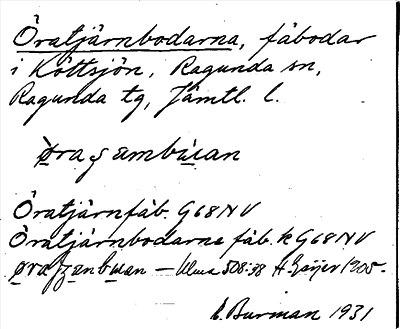 Öratjärnbodarna, fäbodar
i Köttsjön, Ragunda sn,
Ragunda tg, Jämtl. l.
Öratjärnfäb. G68NV
Öratjärnbodarna fäb. k G68NV
508:38 H. Geijer 1905.
E. Burman 1931